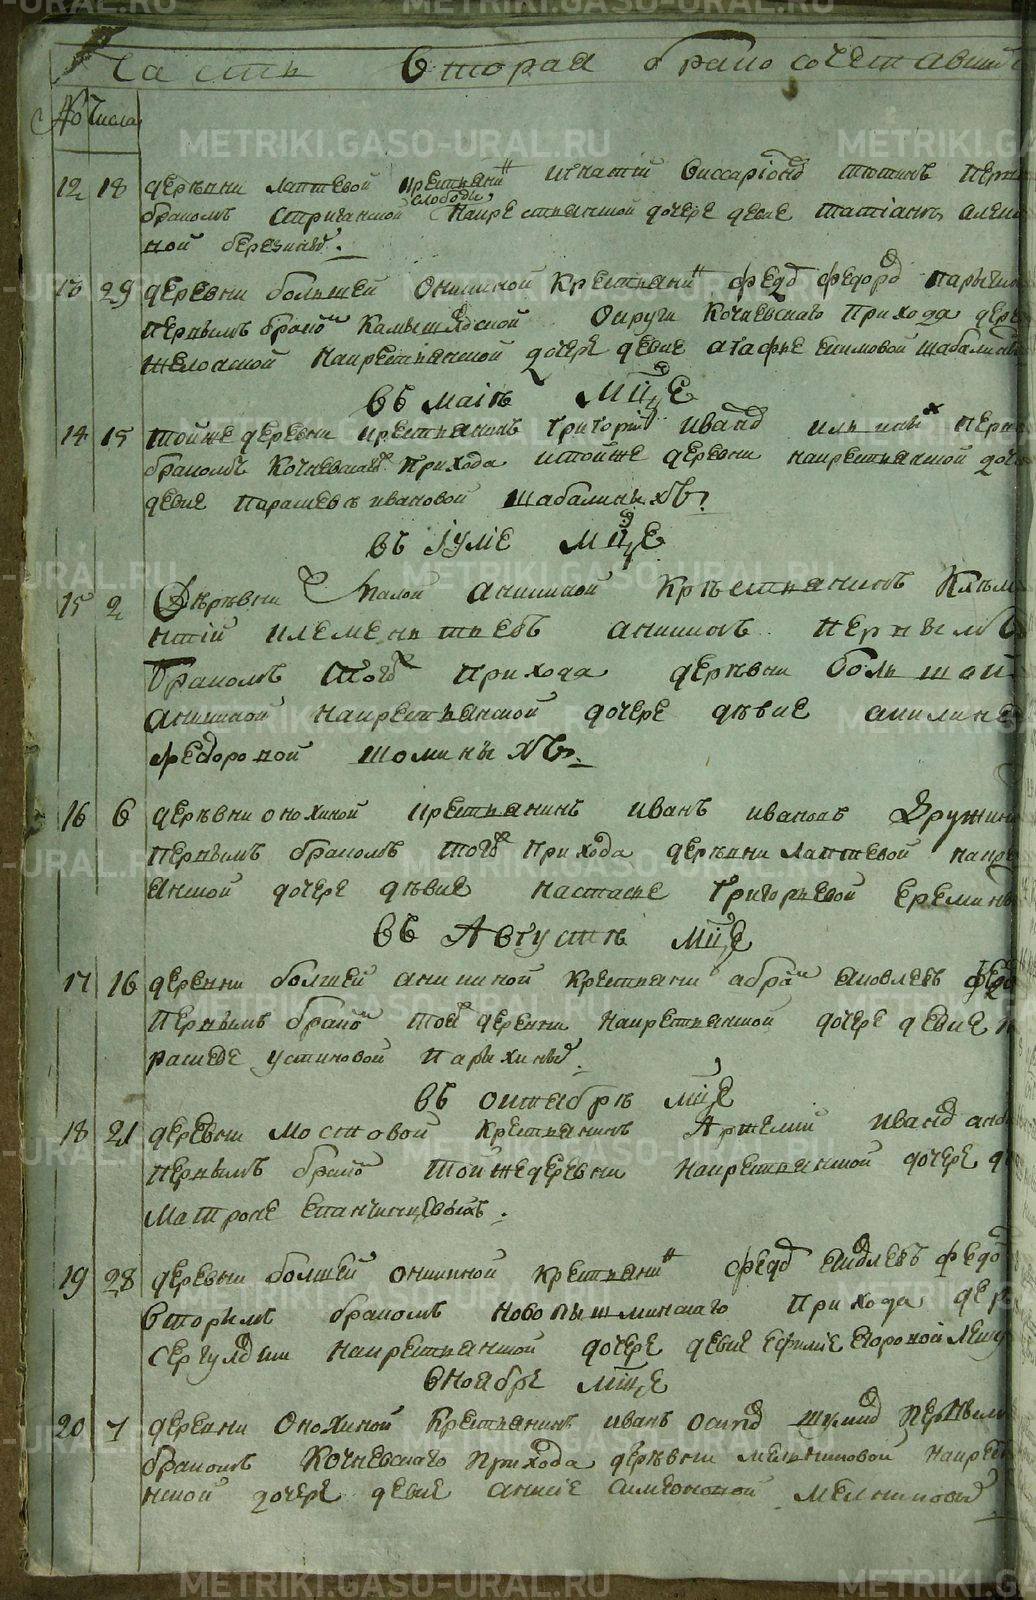 Часть вторая о бракосочетавши
№ Числа
12 18 деревни лаптевой крестьянинъ игнатiй виссарiоновъ
бракомъ стриганской слободы на крестьянской дочере девке татiане
ной березиных.
13 29 деревни болшей онишкиной крестьянинъ федоръ федоровъ
первымъ бракомъ камышловской округи кочневскаго прихода дере
на крестьянской дочере девке агафье екимовой шабалины
въ маiе мцѣ
14 15 тойже деревни крестьянинъ григорий ивановъ перв
бракомъ кочневскаго прихода и тойже деревни на крестьянской доче
девке парасковье ивановой шабалиныхъ.
въ iулiе мцѣ
15 2 Деревни малой аникиной крестьянинъ Клѣме
нтiй клементьевъ аникинъ первымъ
бракомъ тогожъ прихода деревни болшой
аникиной на крестьянской дочере девке акилине
федоровой шоминыхъ.
16 6 деревни онохиной крестьянинъ иванъ ивановъ Дружин
первымъ бракомъ тогожъ прихода деревни лаптевой на кре
янской дочере девке настасье григорьевой еремины
въ Августе мцѣ
17 16 деревни болшей аникиной крестьянинъ абрамъ яковлевъ федо
первымъ бракомъ той деревни на крестьянской дочере девке п
раскеве устиновой парыхиных.
въ октябре мцѣ
18 21 деревни мостовой крестьянинъ Артемий иванов
первымъ бракомъ тойже деревни на крестьянской дочере д
матроне епанчинцовыхъ.
19 28 деревни болшей оникиной крестьянинъ федоръ яковлевъ федо
вторымъ бракомъ новопышминскаго прихода дер
на крестьянской дочере девке ефимiе егоровой
в ноябре мцѣ
20 7 деревни Онохиной крестьянинъ иванъ осиповъ первым
бракомъ кочневскаго прихода деревни мельниковой на крест
нской дочере девке анне симеоновой мелниковы
METRIKI.GASO-URAL.RU